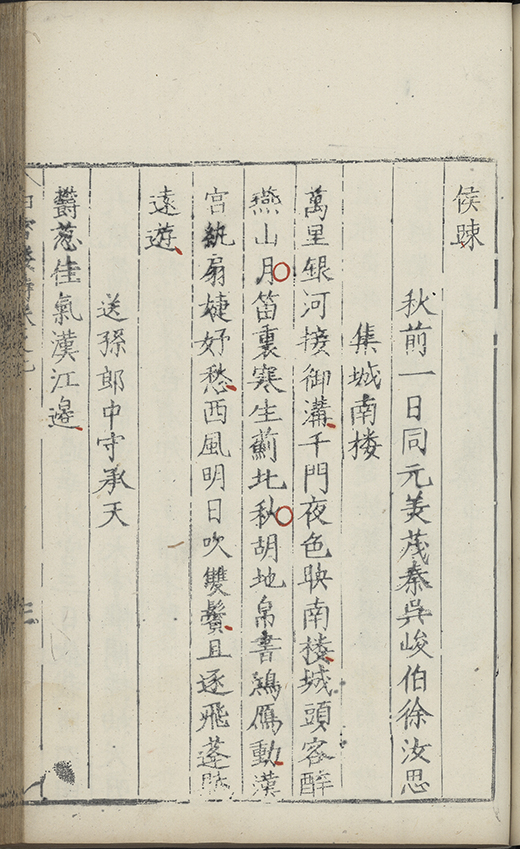 侯踈
秋前一日同元美茂秦吳峻伯徐汝思
集城南楼
萬里銀河接御溝千門夜色映南楼城頭客醉
燕山月笛裏寒生薊北秋胡地帛書鴻鴈動漢
宮紈扇婕妤愁西風明日吹雙鬢且逐飛蓬賦
遠遊
送孫郎中守承天
欝葱佳氣漢江邉